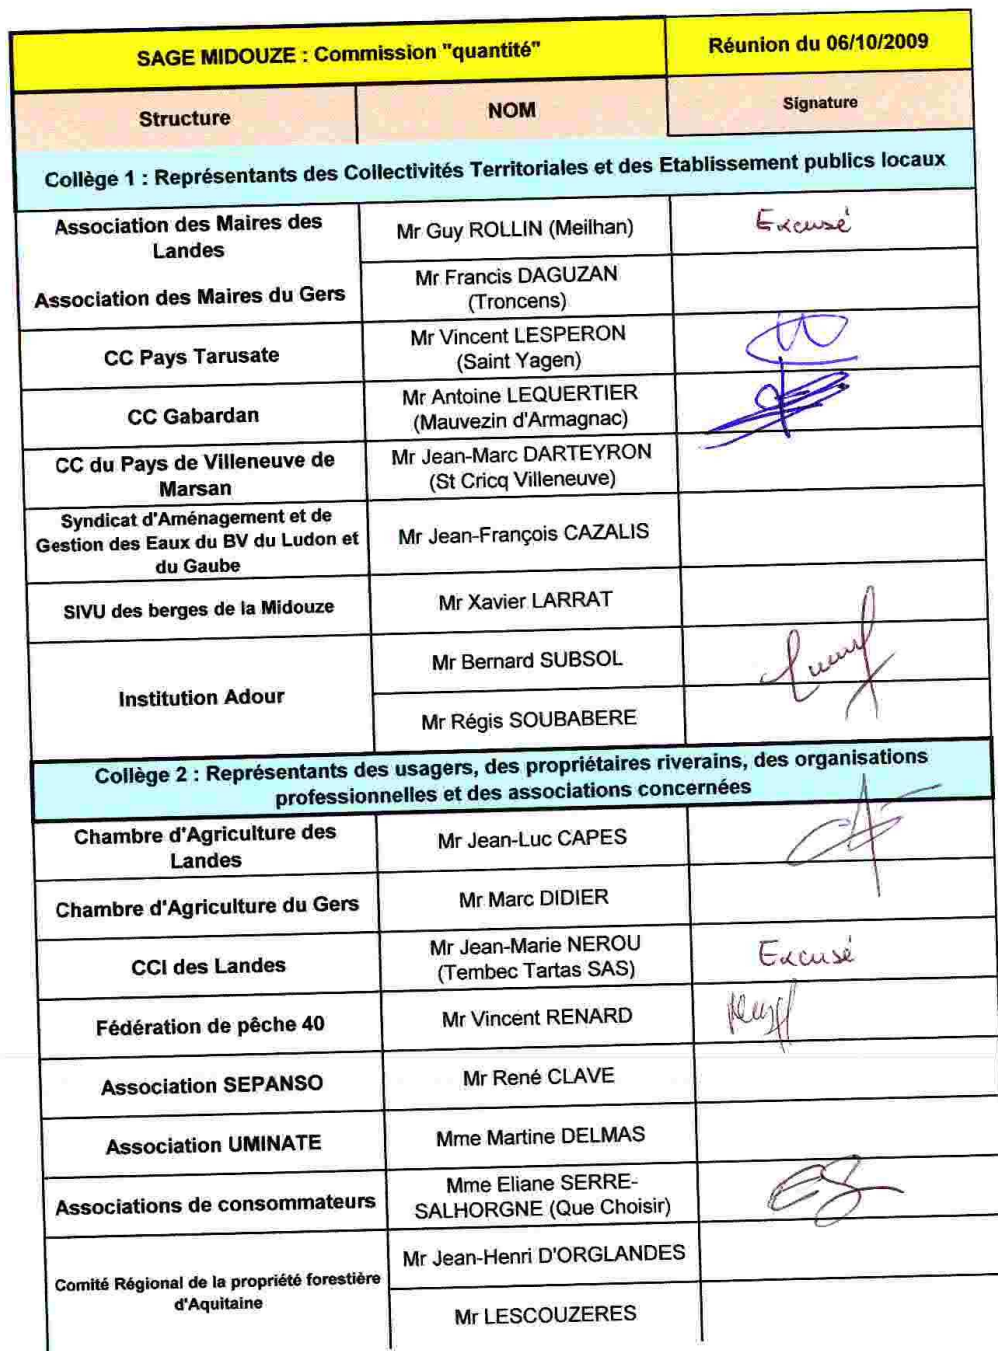 SAGE MIDOUZE : Commission "quantité"
Réunion du 06/10/2009
Structure
NOM
Signature
Collège 1 : Représentants des Collectivités Territoriales et des Etablissement publics locaux
Association des Maires des
Landes
Mr Guy ROLLIN (Meilhan)
Excusé
Association des Maires du Gers
Mr Francis DAGUZAN
(Troncens)
CC Pays Tarusate
Mr Vincent LESPERON
(Saint Yagen)
CC Gabardan
Mr Antoine LEQUERTIER
(Mauvezin d'Armagnac)
CC du Pays de Villeneuve de
Marsan
Mr Jean-Marc DARTEYRON
(St Cricq Villeneuve)
Syndicat d'Aménagement et de
Gestion des Eaux du BV du Ludon et
du Gaube
Mr Jean-François CAZALIS
SIVU des berges de la Midouze
Mr Xavier LARRAT
Institution Adour
Mr Bernard SUBSOL
Mr Régis SOUBABERE
Collège 2 : Représentants des usagers, des propriétaires riverains, des organisations
professionnelles et des associations concernées
Chambre d'Agriculture des
Landes
Mr Jean-Luc CAPES
Chambre d'Agriculture du Gers
Mr Marc DIDIER
CCI des Landes
Mr Jean-Marie NEROU
(Tembec Tartas SAS)
Excusé
Fédération de pêche 40
Mr Vincent RENARD
Association SEPANSO
Mr René CLAVE
Association UMINATE
Mme Martine DELMAS
Associations de consommateurs
Mme Eliane SERRE-
SALHORGNE (Que Choisir)
Comité Régional de la propriété forestière
d'Aquitaine
Mr Jean-Henri D'ORGLANDES
Mr LESCOUZERES